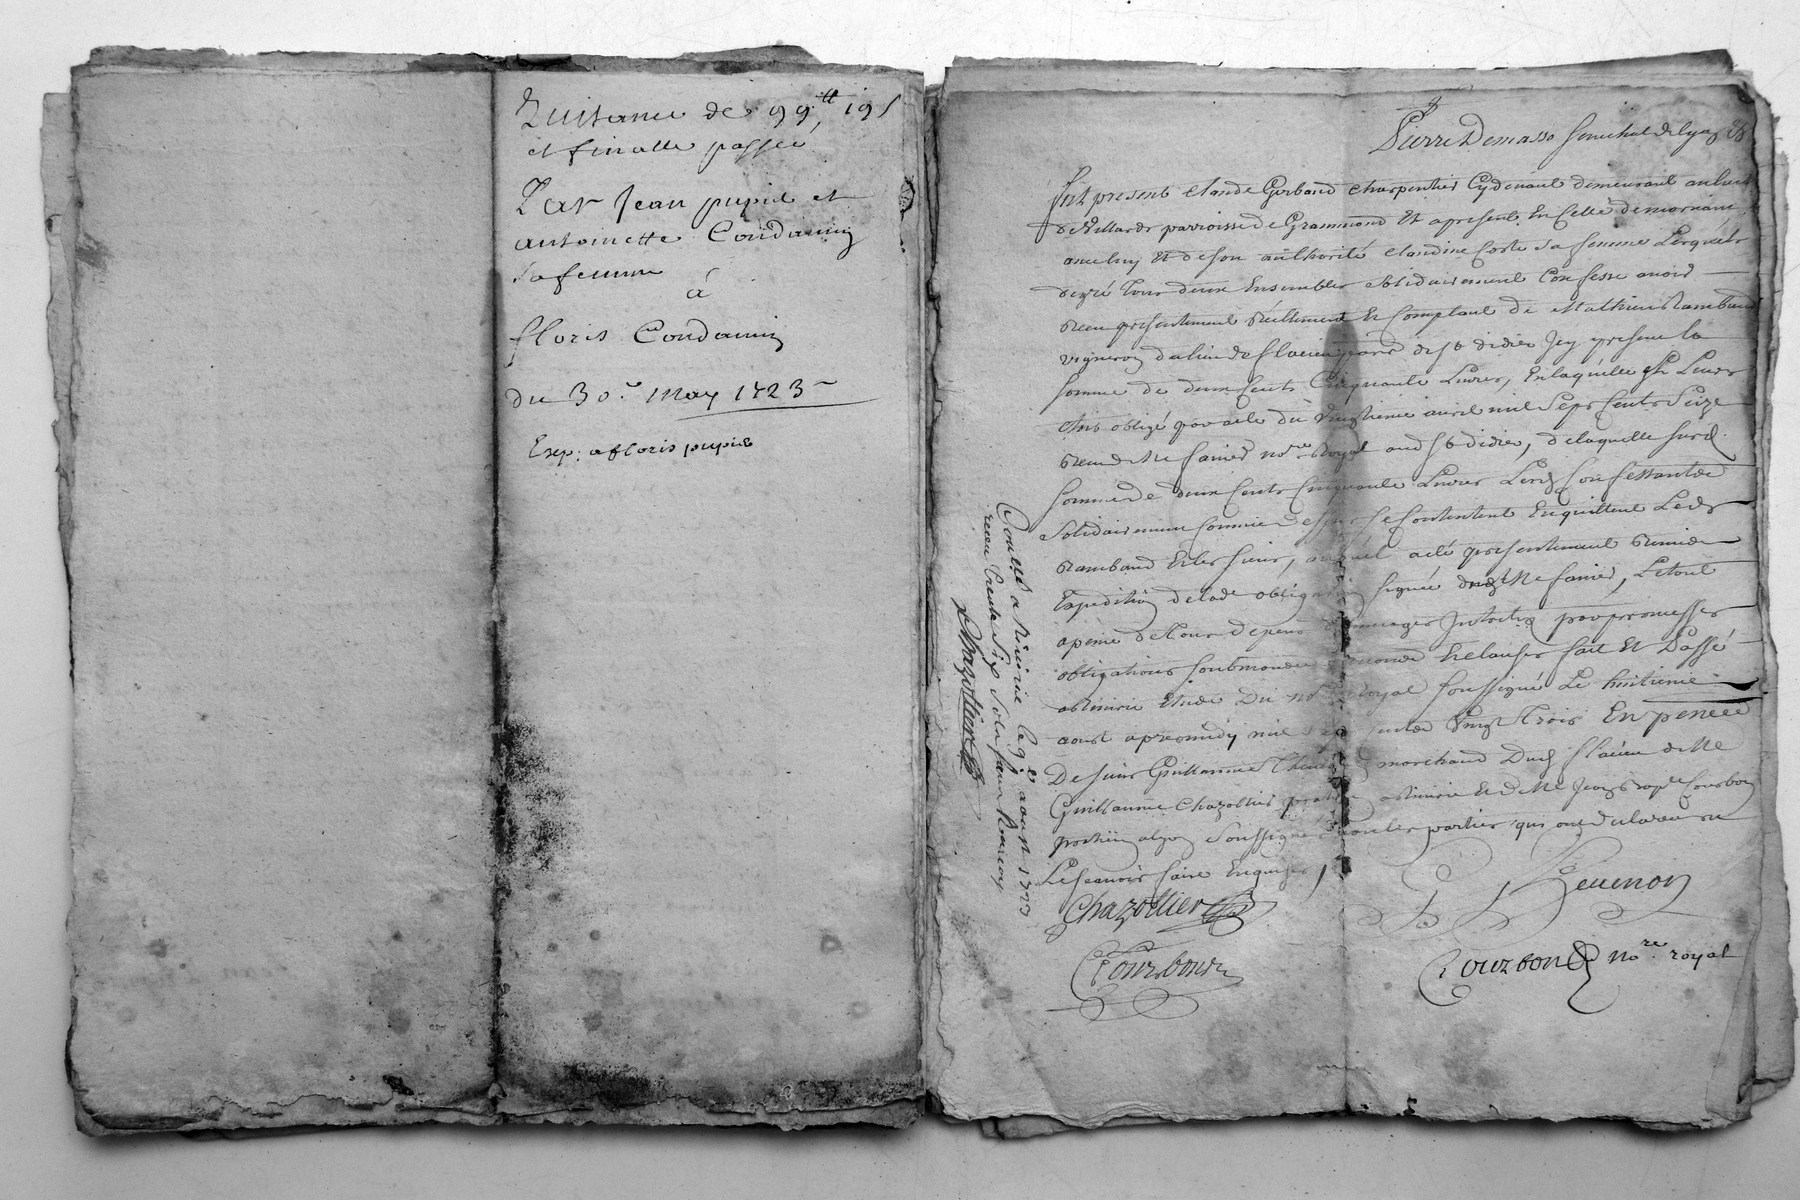 Quitance de 99 ₶ 19 s
et finalle passée
Par Jean pupie et
antoinette Condamin
sa femme
á
floris Condamin
du 30.e May 1723
Exp: a floris pupie
Pierre Demasso senechal de lyon
fut present Claude Gerbaud charpentier Cydevant demeurant au lieu
de Villards parroisse de Grammond Et apresent En Celle de mornant,
avec luy Et de son authorité Claudine Coste sa femme Lesquels
de gré Tous deux Ensembles solidairement Confesse avoir
Receu presentement Réellement Et Comptant de Mathieu Rambaud
vigneron du lieu de flacieu parr de st didier Icy present la
somme de deux Cents Cinquante Livres, En laquelle Il Leurs
obligé par acte du Vingtieme avril mil Sept Cents Seize
Receu Me fanier nore Royal aud st didier, de laquelle susd.
somme de deux Cents Cinquante Livres Lesd Confessantes
solidairement Comme dessus se Contentent En quittent Leds
Rambaud Et les siens, auquel a été presentement Remis
Expedition de lade obligation signée dud Me fanier, Le tout
a peine de Tous depens dommages Interets par promesses
obligations soubmissions Et clauses fait Et Passé
a Riverie Etude Du nore Royal soussigné Le huitieme
aoust apresmidy mil sept Cents Vingt Trois En presence
De sieur Guillaume Thevenon marchand Dud flacieu de Me
Guillaume Chazottier a Riverie Et de Me Courbon
praticien soussignés non les parties qui ont declaré ne
Le scavoir faire Enquises,
Chazottier
Thevenon
Courbon
Courbon nore royal
Conllé a Riverie le 9.e aoust 1723
receu trente six sols
Chazottier